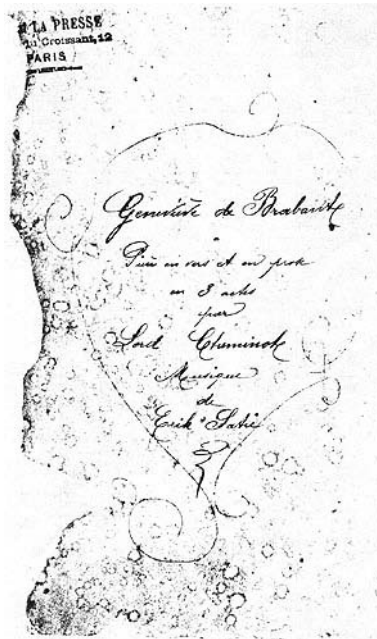 LA PRESSE
du Croissant, 12
PARIS
Geneviève de Brabant
Pièce en vers et en prose
en 3 actes
par
Lord Cheminot
Musique
de
Erik Satie